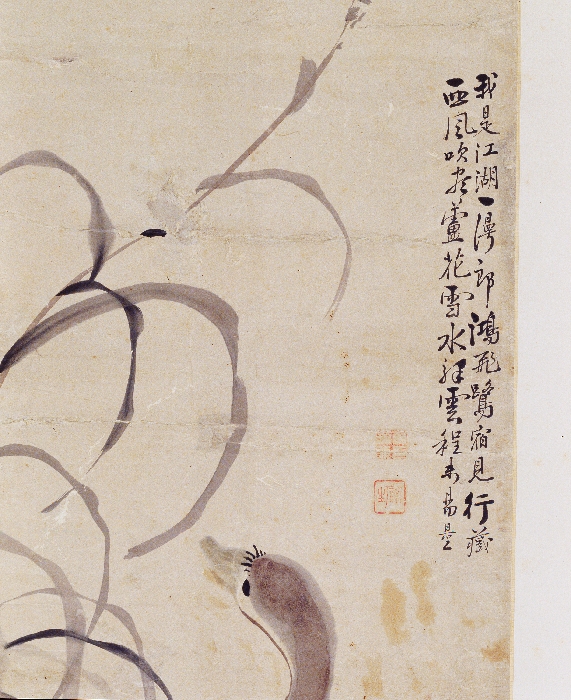 我是江湖一漫郎鴻飛鷺宿見行藏
西風吹盡蘆花雪水程雲程未易量